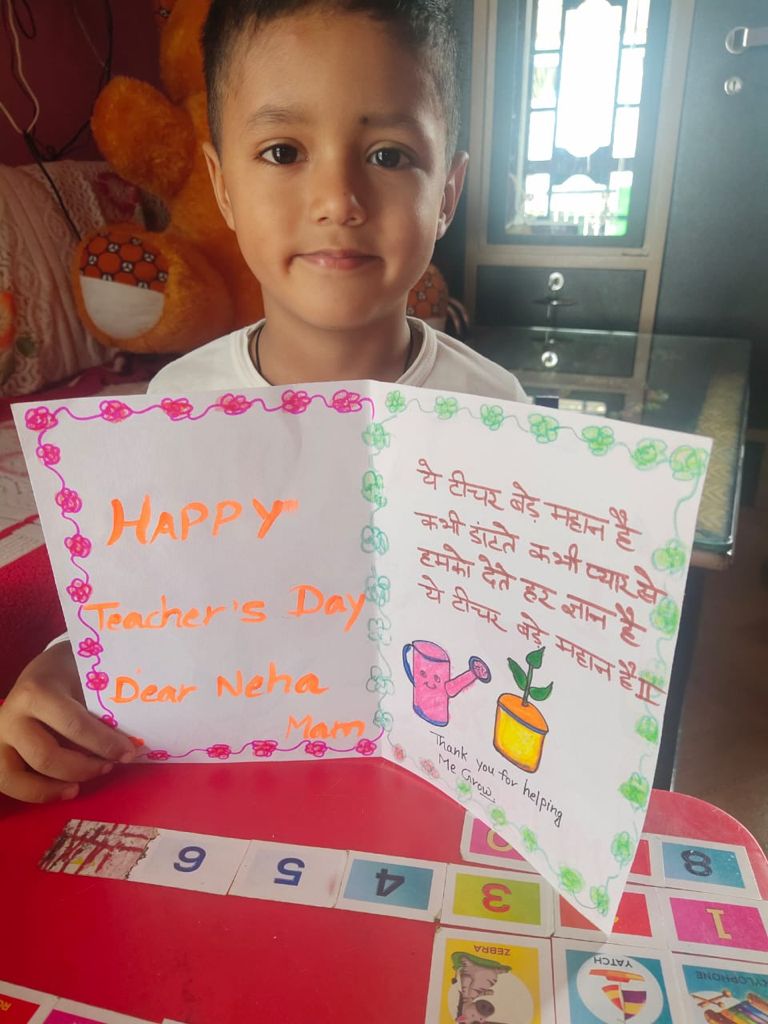 HAPPY
Teacher's Day
Dear Neha
Mam
ये टीचर बेड़े महान है
कभी डांटते कभी प्यार से
हमको देते हर ज्ञान है
ये टीचर बेड़े महान है॥
Thank you for helping
Me Grow
6 5 4 3 1
8
ZEBRA YATCH XYLOPHONE